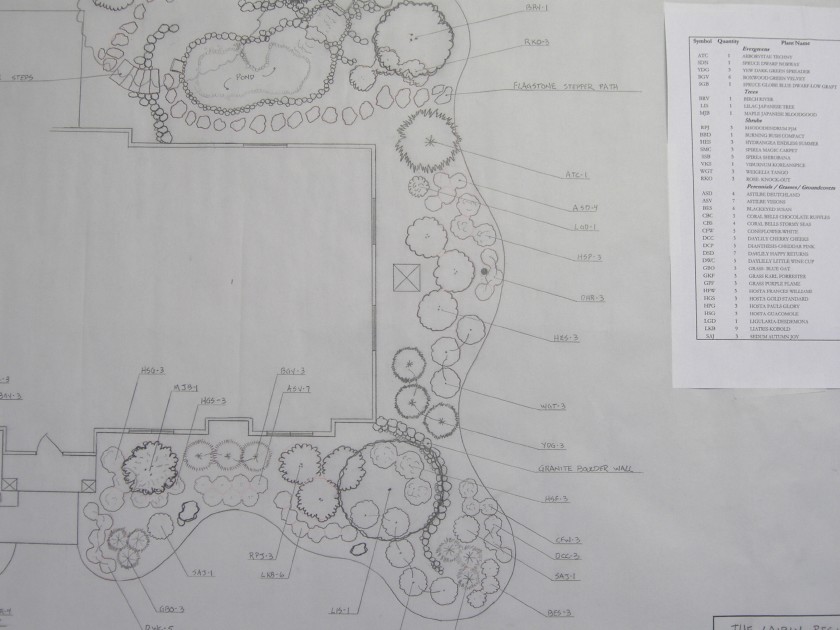 BRV-1
RKO-3
STEPS
POND
FLAGSTONE STEPPER PATH
ATC-1
ASD-4
LGD-1
HSF-3
HES-3
WGT-3
YDG-3
GRANITE BOULDER WALL
HSG-3
MJB-1
HGS-3
BGV-3
ASV-7
CFW-3
DCC-3
SAJ-1
BES-3
RPJ-3
LKB-6
SAJ-1
GBO-3
LJS-1
Symbol Quantity Plant Name
Evergreens
ATC 1 ARBORVITAE TECHNY
SDN 1 SPRUCE DWARF NORWAY
YDG 3 YEW DARK GREEN SPREADER
BGV 6 BOXWOOD GREEN VELVET
SGB 1 SPRUCE GLOBE BLUE DWARF
Trees
BRV 1 BIRCH RIVER
LJS 1 LILAC JAPANESE TREE
MJB 1 MAPLE JAPANESE BLOODGOOD
Shrubs
RPJ 3
BBD 1 BURNING BUSH COMPACT
HES 3 HYDRANGEA ENDLESS SUMMER
SMC 3 SPIREA MAGIC CARPET
SSB 3 SPIREA SHIROBANA
1 VIBURNUM KOREANSPICE
WGT 3 WEIGELIA TANGO
RKO 3 ROSE KNOCK-OUT
Perennials / Grasses/ Groundcovers
ASD 4 ASTILBE DEUTCHLAND
ASV 7 ASTILBE VISIONS
BES 4 BLACKEYED SUSAN
CBC 3 CORAL BELLS CHOCOLATE RUFFLES
CBS 4 CORAL BELLS STORMY SEAS
CFW 3 CONEFLOWER WHITE
DCC 3 DAYLILY CHERRY CHEEKS
DCP 3 DIANTHESIS CHEDDAR PINK
7 DAYLILY HAPPY RETURNS
DWC 3 DAYLILLY LITTLE WINE CUP
GBO 3 GRASS BLUE OAT
GKF 3 GRASS KARL FORRESTER
GPF 3 GRASS PURPLE FLAME
HFW 3 HOSTA FRANCES WILLIAMS
HGS 3 HOSTA GOLD STANDARD
HPG 3 HOSTA PAULS GLORY
HSG 3 HOSTA GUACOMOLE
LGD 1 LIGULARIA-DESDEMONA
LKB 9 LIATRIS-KOBOLD
SAJ 3 SEDUM AUTUMN JOY